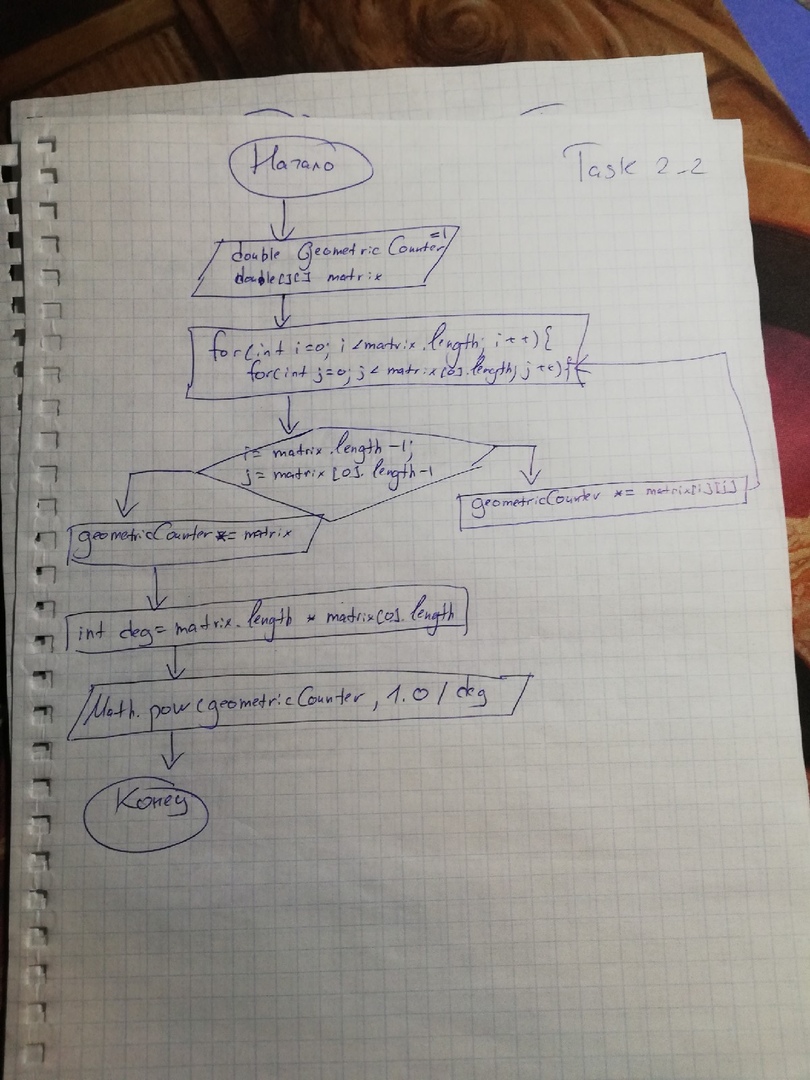 Начало
Task 2_2
double Geometric Counter =1
double[][] matrix
for(int i=0; i<matrix.length; i++){
for(int j=0; j< matrix[0].length; j++){
i= matrix.length-1;
j= matrix[0].length-1
geometricCounter *= matrix[i][j]
geometricCounter *= matrix
int deg= matrix.length * matrix[0].length
Math.pow(geometricCounter, 1.0/deg
Конец